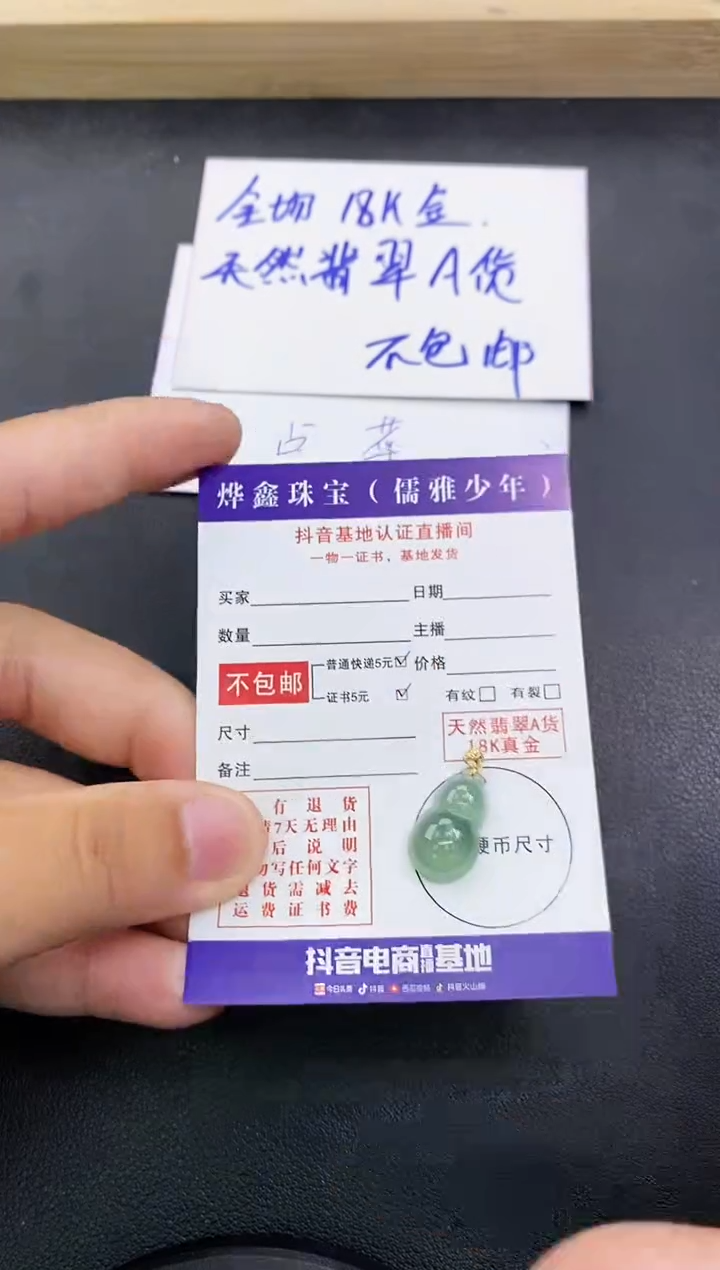 全场 18K金.
天然翡翠A货
不包邮
烨鑫珠宝（儒雅少年）
抖音基地认证直播间
一物一证书、基地发货
买家 日期
数量 主播
不包邮 普通快递5元☑ 价格
证书5元 ☑ 有纹□ 有裂□
尺寸
天然翡翠A货
18K真金
备注
有退货
7天无理由
后说明
写任何文字
货需减去
运费证书费
硬币尺寸
抖音电商直播基地
今日头条 抖音 西瓜视频 抖音火山版